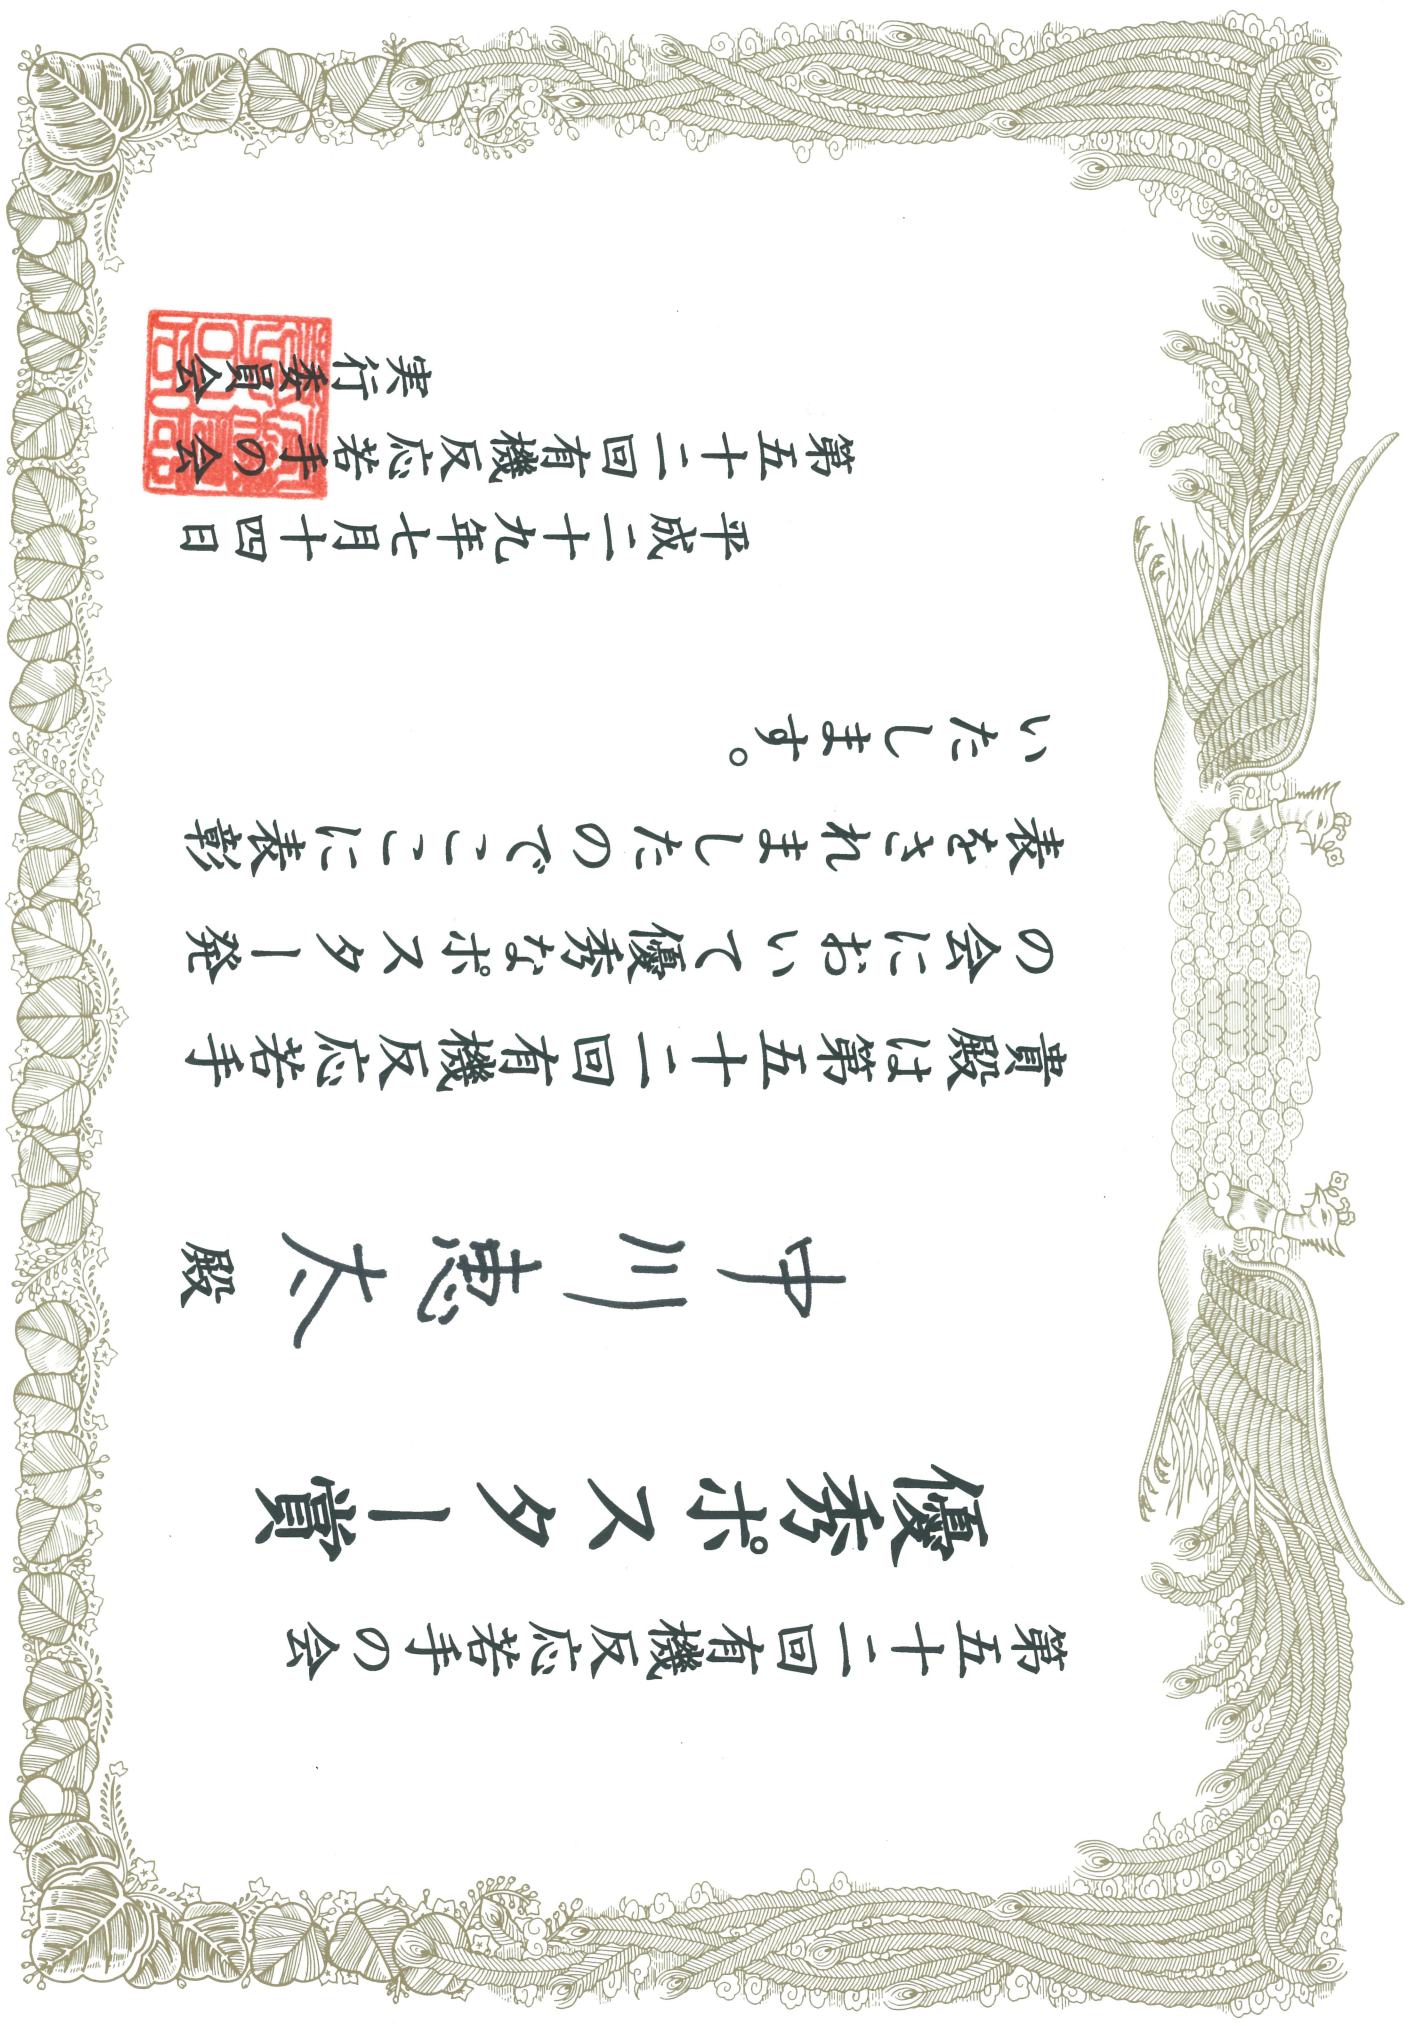 第五十二回有機反応若手の会
優秀ポスター賞
中川恵太 殿
貴殿は第五十二回有機反応若手
の会において優秀なポスター発
表をされましたのでここに表彰
いたします。
平成二十九年七月十四日
第五十二回有機反応若手の会
実行委員会